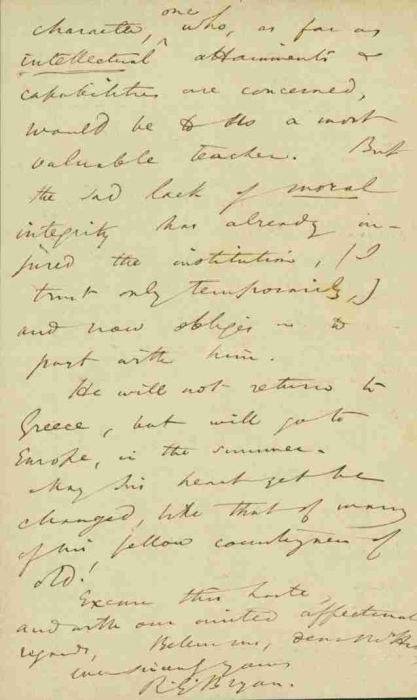 one
character, who, as far as
intellectual attainments &
capabilities are concerned,
would be to us a most
valuable teacher. But
the sad lack of moral
integrity has already in-
jured the institution, (I
trust only temporarily,)
and now obliges us to
part with him.
He will not return to
Greece, but will go to
Europe, in the summer.
May his heart yet be
changed, like that of many
of his fellow countrymen of
old!
Excuse this haste,
and with our united affectionate
regards, Believe me, dear
ever sincerely yours
Bryan.